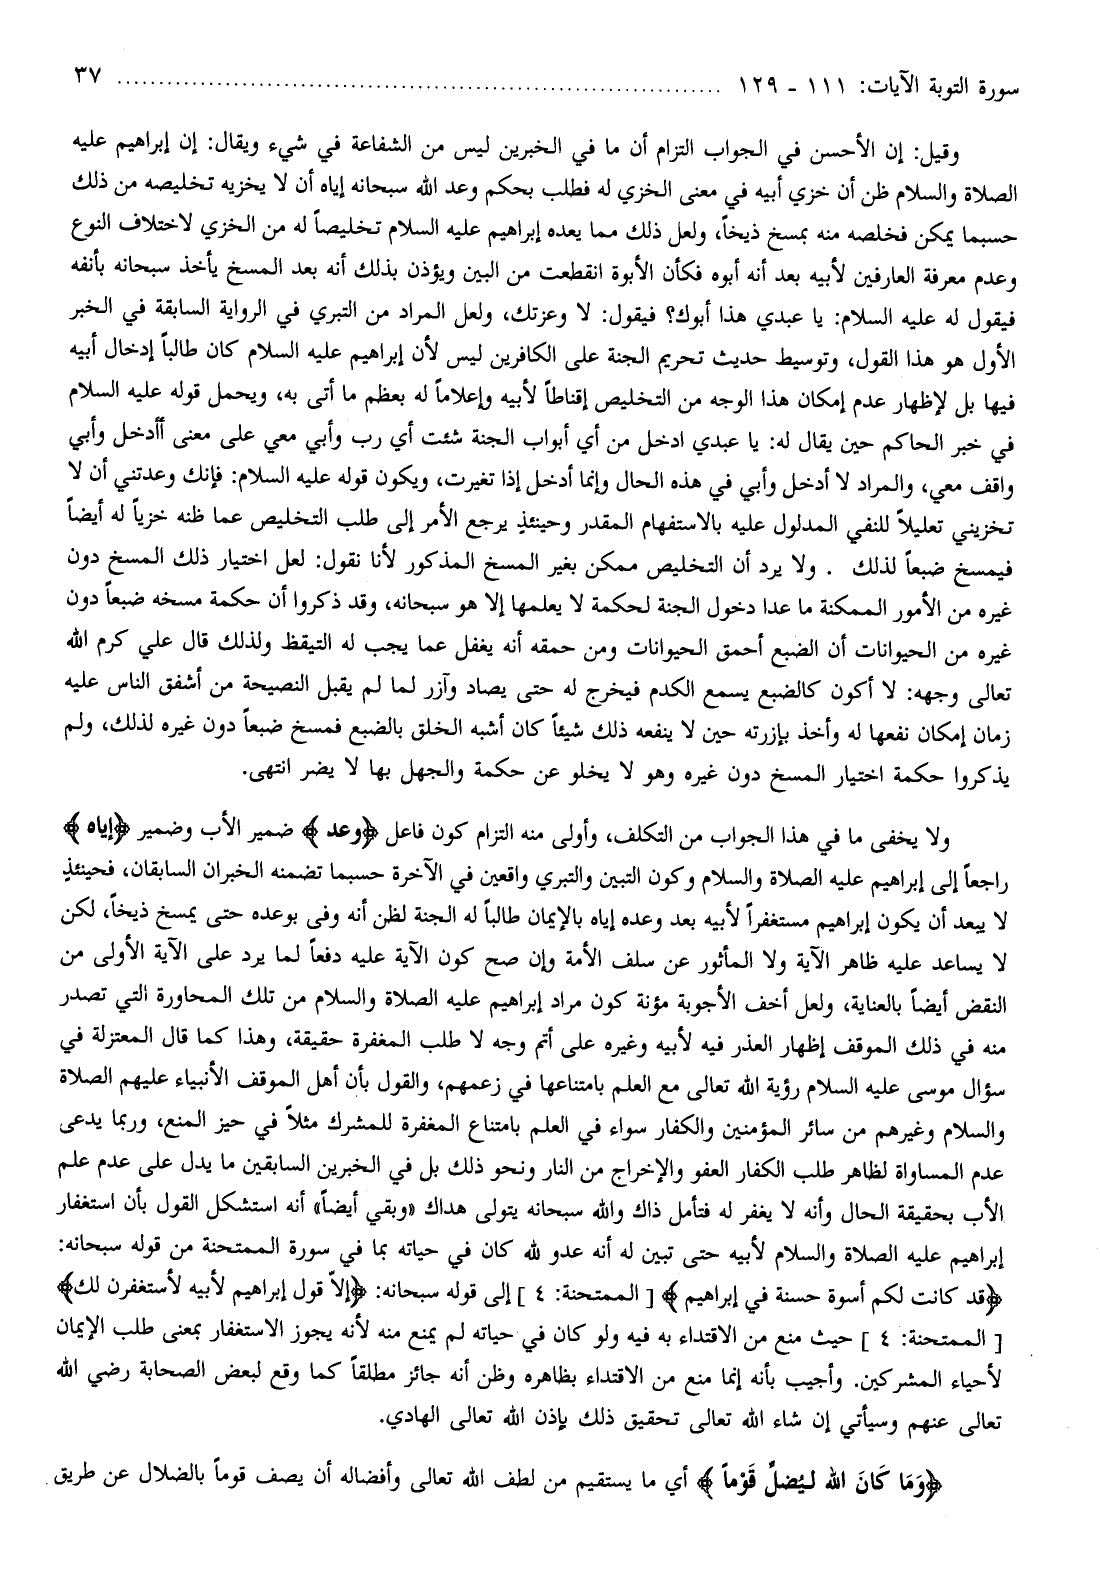 سورة التوبة الآيات: ١١١ - ١٢٩ ........................................................................ ٣٧
وقيل: إن الأحسن في الجواب التزام أن ما في الخبرين ليس من الشفاعة في شيء ويقال: إن إبراهيم عليه
الصلاة والسلام ظن أن خزي أبيه في معنى الخزي له فطلب بحكم وعد الله سبحانه إياه أن لا يخزيه تخليصه من ذلك
حسبما يمكن فخلصه منه بمسخ ذيخاً، ولعل ذلك مما يعده إبراهيم عليه السلام تخليصاً له من الخزي لاختلاف النوع
وعدم معرفة العارفين لأبيه بعد أنه أبوه فكأن الأبوة انقطعت من البين ويؤذن بذلك أنه بعد المسخ يأخذ سبحانه بأنفه
فيقول له عليه السلام: يا عبدي هذا أبوك؟ فيقول: لا وعزتك، ولعل المراد من التبري في الرواية السابقة في الخبر
الأول هو هذا القول، وتوسيط حديث تحريم الجنة على الكافرين ليس لأن إبراهيم عليه السلام كان طالباً إدخال أبيه
فيها بل لإظهار عدم إمكان هذا الوجه من التخليص إقناطاً لأبيه وإعلاماً له بعظم ما أتى به، ويحمل قوله عليه السلام
في خبر الحاكم حين يقال له: يا عبدي ادخل من أي أبواب الجنة شئت أي رب وأبي معي على معنى أأدخل وأبي
واقف معي، والمراد لا أدخل وأبي في هذه الحال وإنما أدخل إذا تغيرت، ويكون قوله عليه السلام: فإنك وعدتني أن لا
تخزيني تعليلاً للنفي المدلول عليه بالاستفهام المقدر وحينئذٍ يرجع الأمر إلى طلب التخليص عما ظنه خزياً له أيضاً
فيمسخ ضبعاً لذلك . ولا يرد أن التخليص ممكن بغير المسخ المذكور لأنا نقول: لعل اختيار ذلك المسخ دون
غيره من الأمور الممكنة ما عدا دخول الجنة لحكمة لا يعلمها إلا هو سبحانه، وقد ذكروا أن حكمة مسخه ضبعاً دون
غيره من الحيوانات أن الضبع أحمق الحيوانات ومن حمقه أنه يغفل عما يجب له التيقظ ولذلك قال علي كرم الله
تعالى وجهه: لا أكون كالضبع يسمع الكدم فيخرج له حتى يصاد وآزر لما لم يقبل النصيحة من أشفق الناس عليه
زمان إمكان نفعها له وأخذ بإزرته حين لا ينفعه ذلك شيئاً كان أشبه الخلق بالضبع فمسخ ضبعاً دون غيره لذلك، ولم
يذكروا حكمة اختيار المسخ دون غيره وهو لا يخلو عن حكمة والجهل بها لا يضر انتهى.
ولا يخفى ما في هذا الجواب من التكلف، وأولى منه التزام كون فاعل ﴿وعد﴾ ضمير الأب وضمير ﴿إياه﴾
راجعاً إلى إبراهيم عليه الصلاة والسلام وكون التبين والتبري واقعين في الآخرة حسبما تضمنه الخبران السابقان، فحينئذٍ
لا يبعد أن يكون إبراهيم مستغفراً لأبيه بعد وعده إياه بالإيمان طالباً له الجنة لظن أنه وفى بوعده حتى يمسخ ذيخاً، لكن
لا يساعد عليه ظاهر الآية ولا المأثور عن سلف الأمة وإن صح كون الآية عليه دفعاً لما يرد على الآية الأولى من
النقض أيضاً بالعناية، ولعل أخف الأجوبة مؤنة كون مراد إبراهيم عليه الصلاة والسلام من تلك المحاورة التي تصدر
منه في ذلك الموقف إظهار العذر فيه لأبيه وغيره على أتم وجه لا طلب المغفرة حقيقة، وهذا كما قال المعتزلة في
سؤال موسى عليه السلام رؤية الله تعالى مع العلم بامتناعها في زعمهم، والقول بأن أهل الموقف الأنبياء عليهم الصلاة
والسلام وغيرهم من سائر المؤمنين والكفار سواء في العلم بامتناع المغفرة للمشرك مثلاً في حيز المنع، وربما يدعى
عدم المساواة لظاهر طلب الكفار العفو والإخراج من النار ونحو ذلك بل في الخبرين السابقين ما يدل على عدم علم
الأب بحقيقة الحال وأنه لا يغفر له فتأمل ذاك والله سبحانه يتولى هداك «وبقي أيضاً» أنه استشكل القول بأن استغفار
إبراهيم عليه الصلاة والسلام لأبيه حتى تبين له أنه عدو لله كان في حياته بما في سورة الممتحنة من قوله سبحانه:
﴿قد كانت لكم أسوة حسنة في إبراهيم﴾ [ الممتحنة: ٤ ] إلى قوله سبحانه: ﴿إلاّ قول إبراهيم لأبيه لأستغفرن لك﴾
[ الممتحنة: ٤ ] حيث منع من الاقتداء به فيه ولو كان في حياته لم يمنع منه لأنه يجوز الاستغفار بمعنى طلب الإيمان
لأحياء المشركين. وأجيب بأنه إنما منع من الاقتداء بظاهره وظن أنه جائز مطلقاً كما وقع لبعض الصحابة رضي الله
تعالى عنهم وسيأتي إن شاء الله تعالى تحقيق ذلك بإذن الله تعالى الهادي.
﴿وَمَا كَانَ الله ليُضلَّ قَوْماً﴾ أي ما يستقيم من لطف الله تعالى وأفضاله أن يصف قوماً بالضلال عن طريق